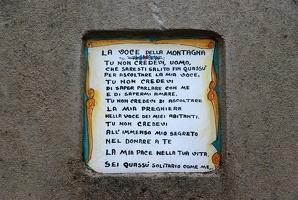 LA VOCE DELLA MONTAGNA
TU NON CREDEVI, UOMO,
CHE SARESTI SALITO FIN QUASSÙ
PER ASCOLTARE LA MIA VOCE.
TU NON CREDEVI
DI SAPER PARLARE CON ME
E DI SAPERMI AMARE.
TU NON CREDEVI DI ASCOLTARE
LA MIA PREGHIERA
NELLA VOCE DEI MIEI ABITANTI.
TU NON CREDEVI
ALL'IMMENSO MIO SEGRETO
NEL DONARE A TE
LA MIA PACE NELLA TUA VITA.
SEI QUASSÙ SOLITARIO COME ME.